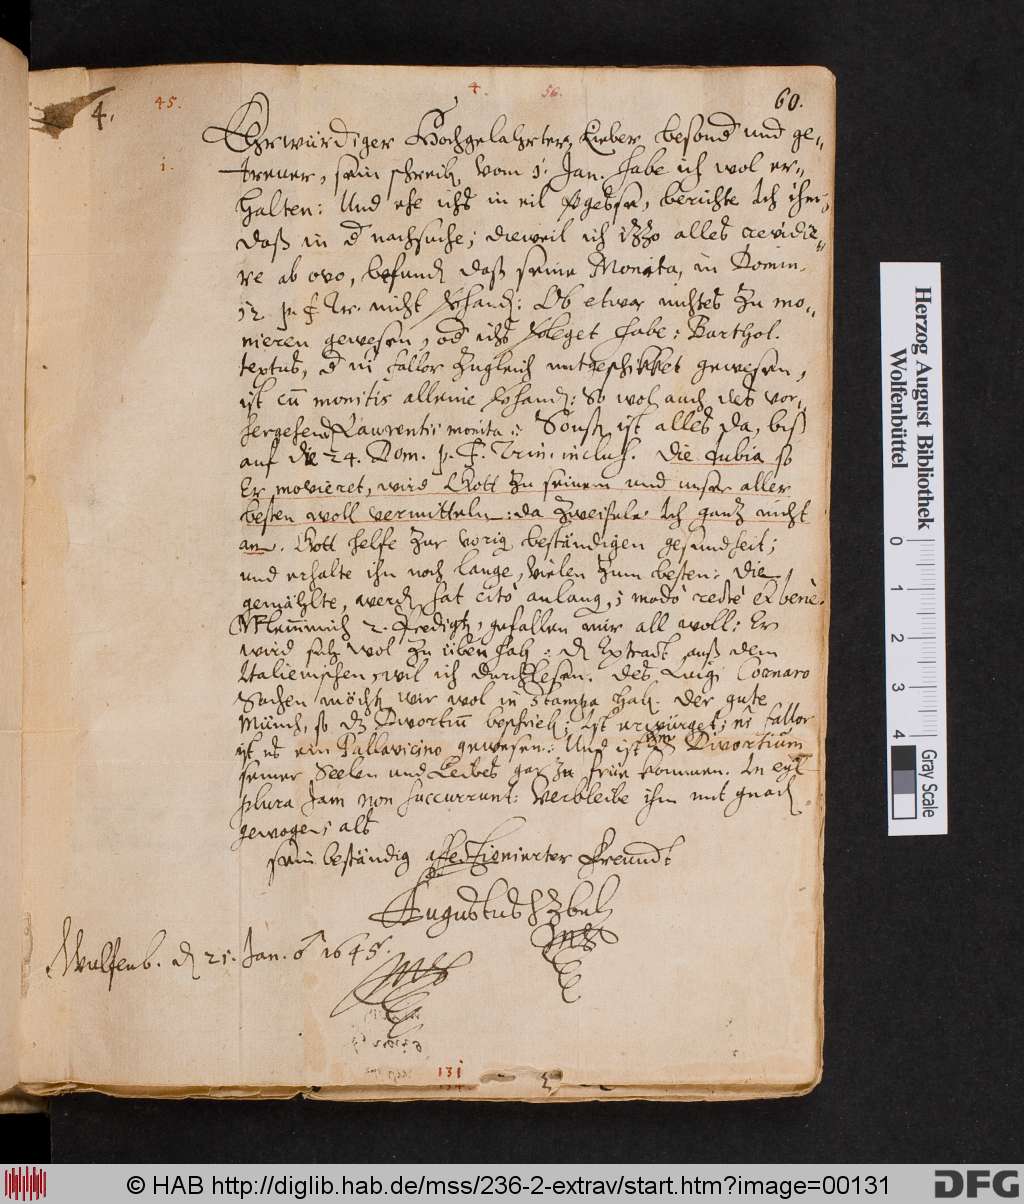 4.
45.
4.
56.
60.
Ehrwürdiger Hochgelahrter, Lieber besond und ge-
1.
treuer, sein schreib vom 1. Jan. habe ich wol er-
halten: Und ehe ichs in eil vergesse, berichte Ich ihm,
daß in d nachsuche, dieweil ich itzo alles revidi-
re ab ovo, befund daß seine Monita, in Domin.
12 p. f. Tr. nicht vorhand: Ob etwa nichtes zu mo-
nieren gewesen, od ichs verleget habe: Barthol.
textus, d ni fallor zugleich mitgeschikket gewesen,
ist cum monitis alleine vorhand: So wol auch des vor-
hergehend Laurentii monita: Sonst ist alles da, biß
auf die 24. Dom. p. F. Trin. inclus. Die dubia so
Er movieret, wird Gott zu seinem und unser aller
besten woll vermitteln: da zweifele Ich gantz nicht
an. Gott helfe zur vorig beständigen gesundheit;
und erhalte ihn noch lange, vielen zum besten: Die
gemählte, werd hat cito anlang, modo recte et bene.
2. Predigt, gefallen mir all woll: Er
wird sich wol zu üben hab: d Extract auß dem
Italienischen, wil ich durchlesen. Des Luigi Cornaro
Sachen möcht wir wol in stampa hab. Der gute
Münch, so dz Divortium beschrieb, ist erwürget; ni fallor
ist es ein Pallavicino gewesen: Und ist dz Divortium
seiner Seelen und Leibes gar zu früe kommen. In eyl
plura jam non succurrunt: Verbleibe ihm mit gnad
gewogen; als
sein beständig affectionierter Freundt
Augustus HZBuL
Wulfenb. d 21. Jan. 1645.
131
Herzog August Bibliothek
Wolfenbüttel
0 1 2 3 4
Gray Scale
© HAB http://diglib.hab.de/mss/236-2-extrav/start.htm?image=00131
DFG